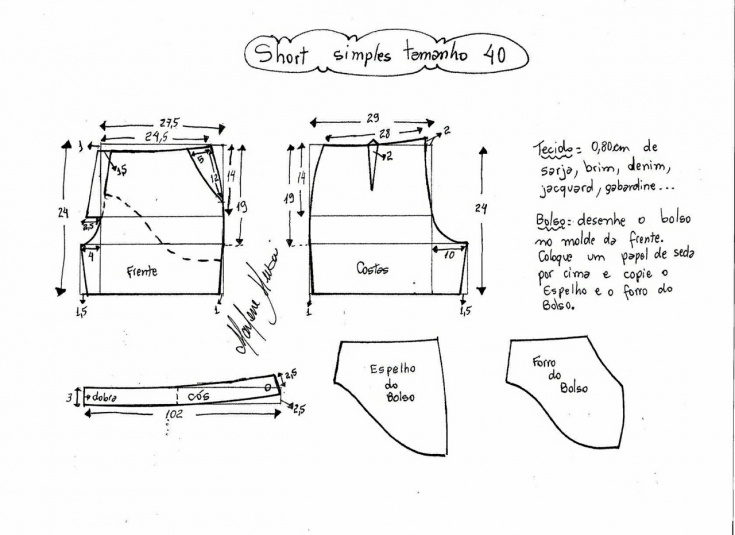 Short simples tamanho 40
27,5
24,5
1
1,5
5
12
14
19
24
2,5
4
Frente
1,5
1
29
28
2
2
14
19
24
10
Costas
1
1,5
Marlene Mukai
Tecido= 0,80cm de
sarja, brim, denim,
jacquard, gabardine...
Bolso= desenhe o bolso
no molde da frente.
Coloque um papel de seda
por cima e copie o
Espelho e o forro do
Bolso.
3
dobra
cós
2,5
2,5
102
Espelho
do
Bolso
Forro
do
Bolso